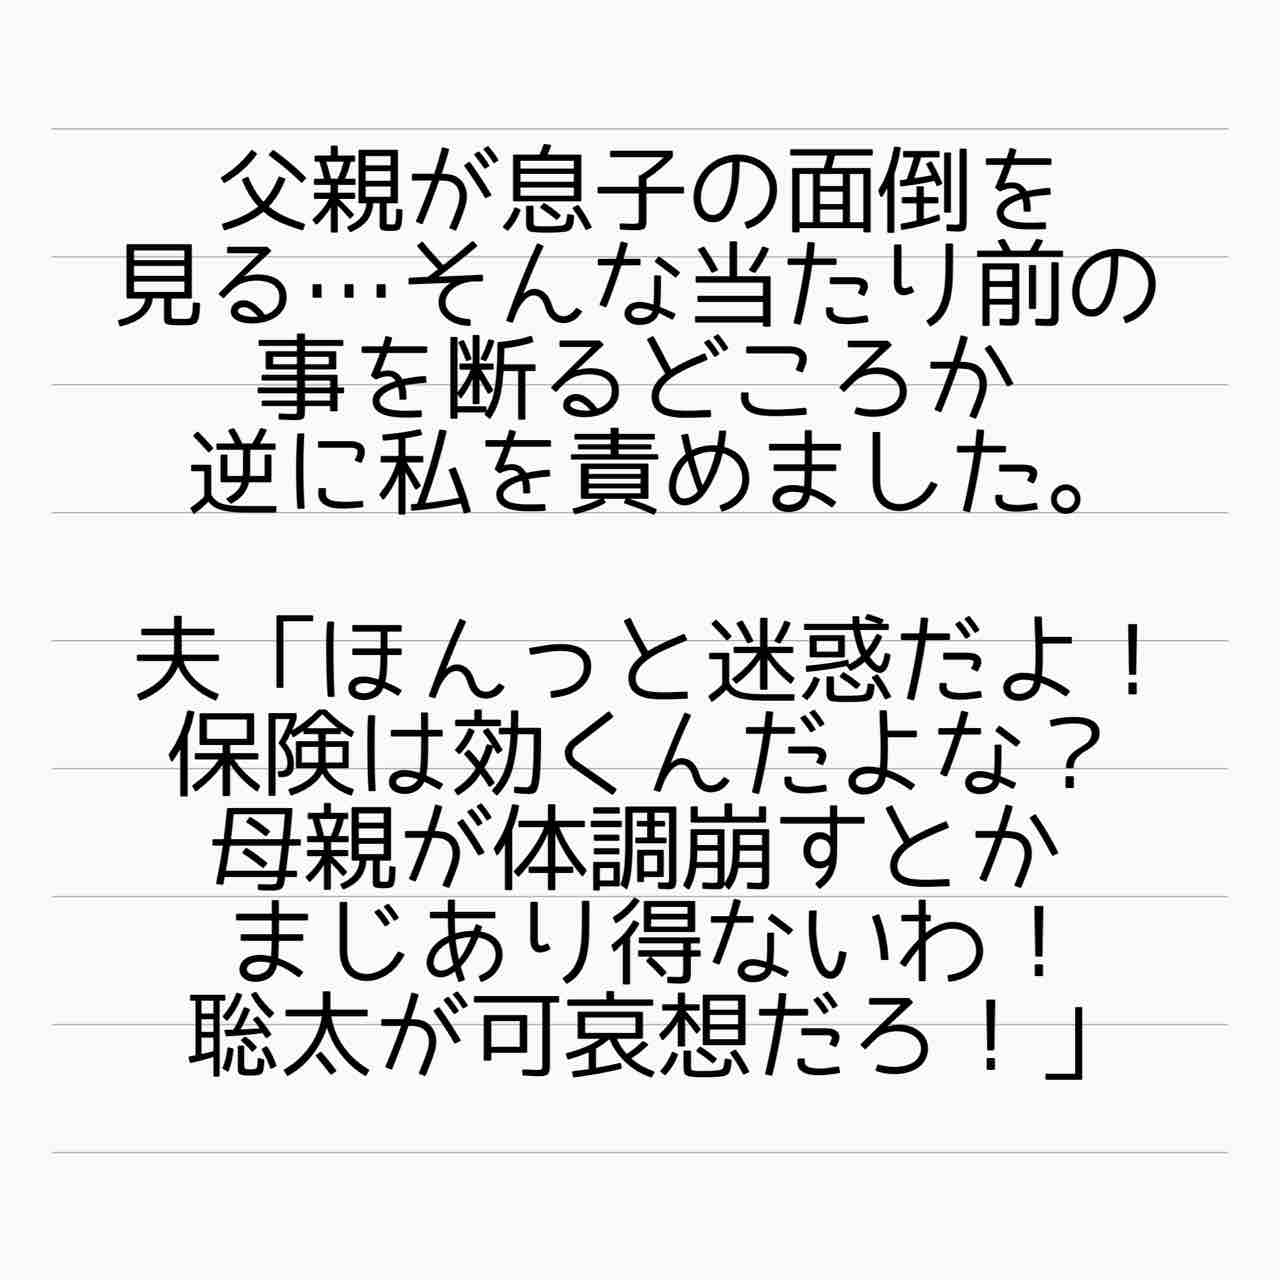 父親が息子の面倒を
見る…そんな当たり前の
事を断るどころか
逆に私を責めました。
夫「ほんっと迷惑だよ！
保険は効くんだよな？
母親が体調崩すとか
まじあり得ないわ！
聡太が可哀想だろ！」